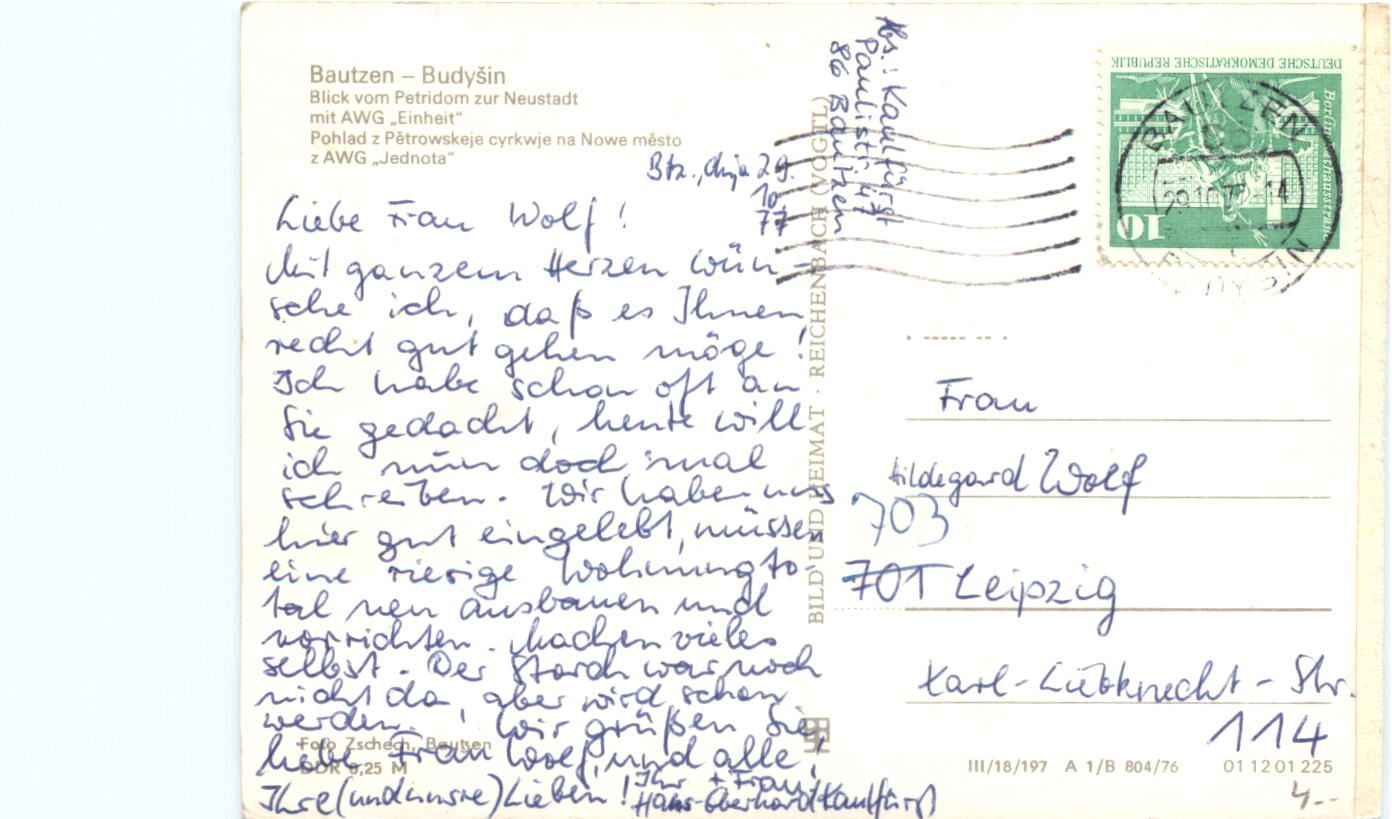 Bautzen – Budyšin
Blick vom Petridom zur Neustadt
mit AWG „Einheit“
Pohlad z Pětrowskeje cyrkwje na Nowe město
z AWG „Jednota“
Btz., 29.
10.
77
Liebe Frau Wolf!
Mit ganzem Herzen wün-
sche ich, daß es Ihnen
recht gut gehen möge!
Ich habe schon oft an
Sie gedacht, heute will
ich nun doch mal
schreiben. Wir haben uns
hier gut eingelebt, müssen
eine riesige Wohnung to-
tal neu ausbauen und
vorrichten. Machen vieles
selbst. Der Storch war noch
nicht da, aber wird schon
werden! Wir grüßen Sie,
liebe Frau Wolf, und alle
Ihre (und unsre) Lieben!
Ihr + Frau
Hans-Eberhard Kaulfürst
Foto Zschech, Bautzen
DDR 0,25 M
BILD UND HEIMAT · REICHENBACH (VOGTL)
Abs.: Kaulfürst
Paulistr. 47
86 Bautzen
DEUTSCHE DEMOKRATISCHE REPUBLIK
10
BAUTZEN
29.10.77-14
BUDYŠIN
Frau
Hildegard Wolf
703
701 Leipzig
Karl-Liebknecht-Str.
114
III/18/197 A 1/B 804/76 01 12 01 225
4.--